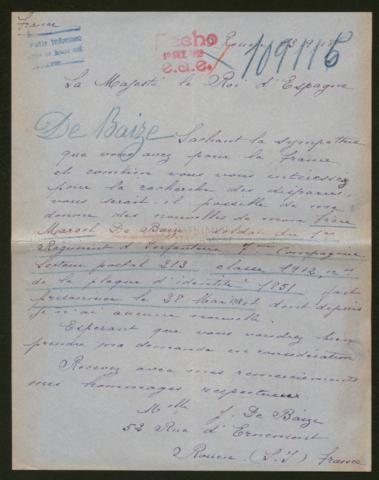 France
Hecho
109115
Rouen
Sa Majesté le Roi d'Espagne
De Baize
Sachant la sympathie
que vous avez pour la france
et combien vous vous intéressez
pour la recherche des disparus,
vous serait il possible de me
donner des nouvelles de mon frère
Marcel De Baize soldat du
Régiment d'Infanterie 7me Compagnie
Secteur postal 213 classe 1912 no
de la plaque d'identité 1851 fait
prisonnier le 28 Mai dont depuis
je n'ai aucune nouvelle.
Espérant que vous voudrez bien
prendre ma demande en considération
Recevez avec mes remerciements
mes hommages respectueux.
Melle J. De Baize
52 Rue d'Ernemont
Rouen (S. I) france